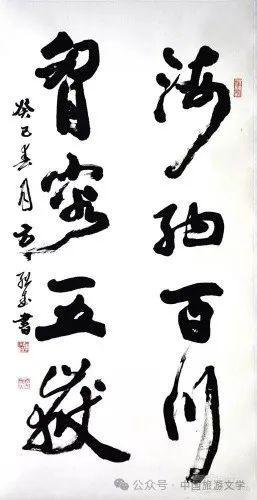 海納百川
胷容五嶽
癸巳春月書
公众号·中国旅游文学